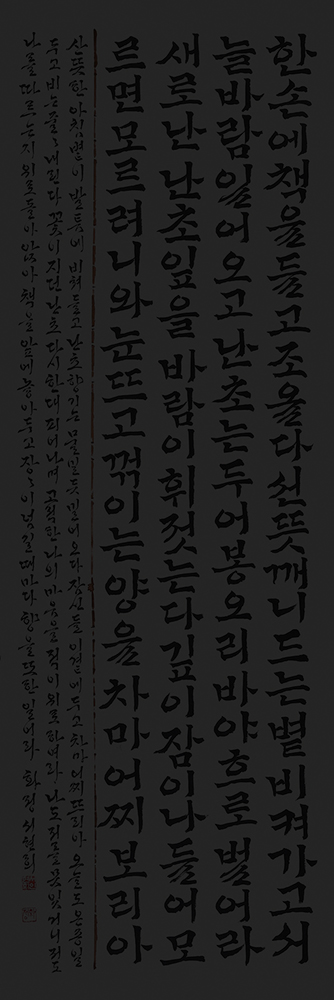 한손에책을들고조을다선뜻깨니드는볕비켜가고서
늘바람일어오고난초는두어봉오리바야흐로벌어라
새로난난초잎을바람이휘젓는다깊이잠이나들어모
르면모르려니와눈뜨고꺾이는양을차마어찌보리아
산뜻한아침볕이발틈에비쳐들고난초향기는물밀듯밀어오다잠신들이곁에두고차마어찌뜨리아오늘도온종일
두고비는줄〻내린다꽃이지던난초다시한대피어나며고적한나의마음을적이위로하여라나도저를못잊거니저도
나를따르는지외로돌아앉아책을앞에놓아두고장〻이넘길때마다향을또한일어라 화정